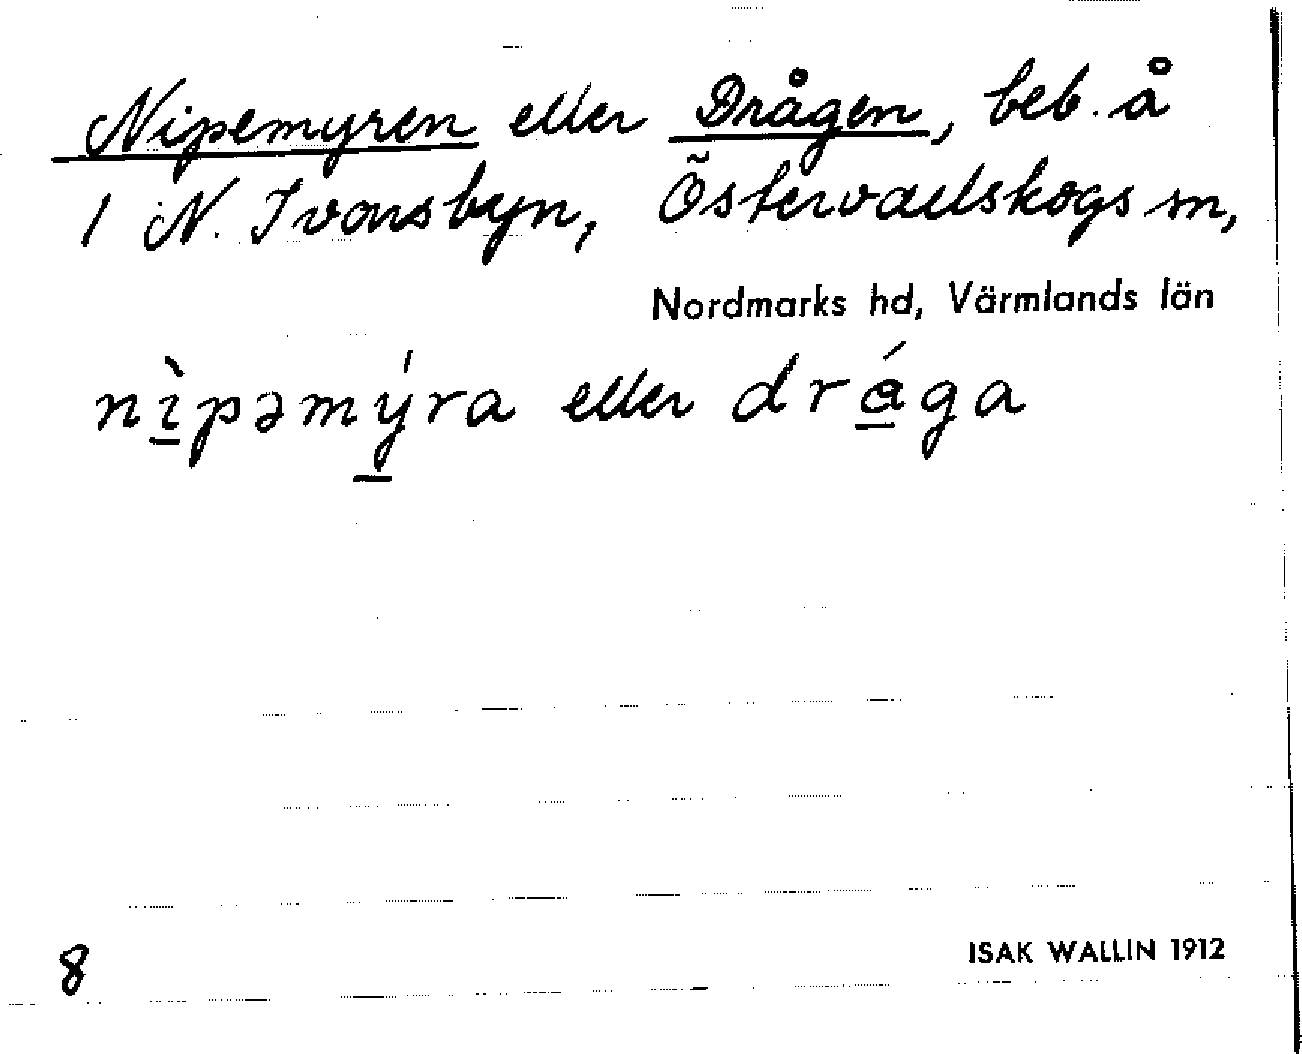 Nipemyren eller Drågen, beb. å
1 N. Ivarsbyn, Östervallskogs sn,
Nordmarks hd, Värmlands län
nı̱̀pəmý̱ra eller drá̱ga
8
ISAK WALLIN 1912